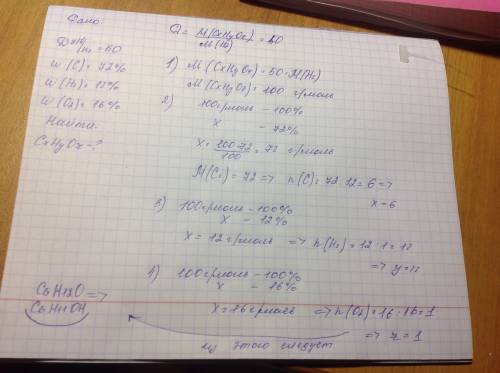 Дано:
D по H₂ = 50
w (C) = 72%
w (H₂) = 12%
w (O₂) = 16%
Найти:
CxHyOz - ?
D = M(CxHyOz) / M(H₂) = 50
1) M (CxHyOz) = 50 · M(H₂)
M (CxHyOz) = 100 г/моль
2) 100 г/моль - 100%
x - 72%
x = 100·72 / 100 = 72 г/моль
M(C) = 72 => n(C) = 72 : 12 = 6 =>
x = 6
3) 100 г/моль - 100%
x - 12%
x = 12 г/моль => n(H₂) = 12 : 1 = 12
=> y = 12
4) 100 г/моль - 100%
x - 16%
x = 16 г/моль => n(O₂) = 16 : 16 = 1
=> z = 1
C6H12O =>
C6H11OH
из этого следует